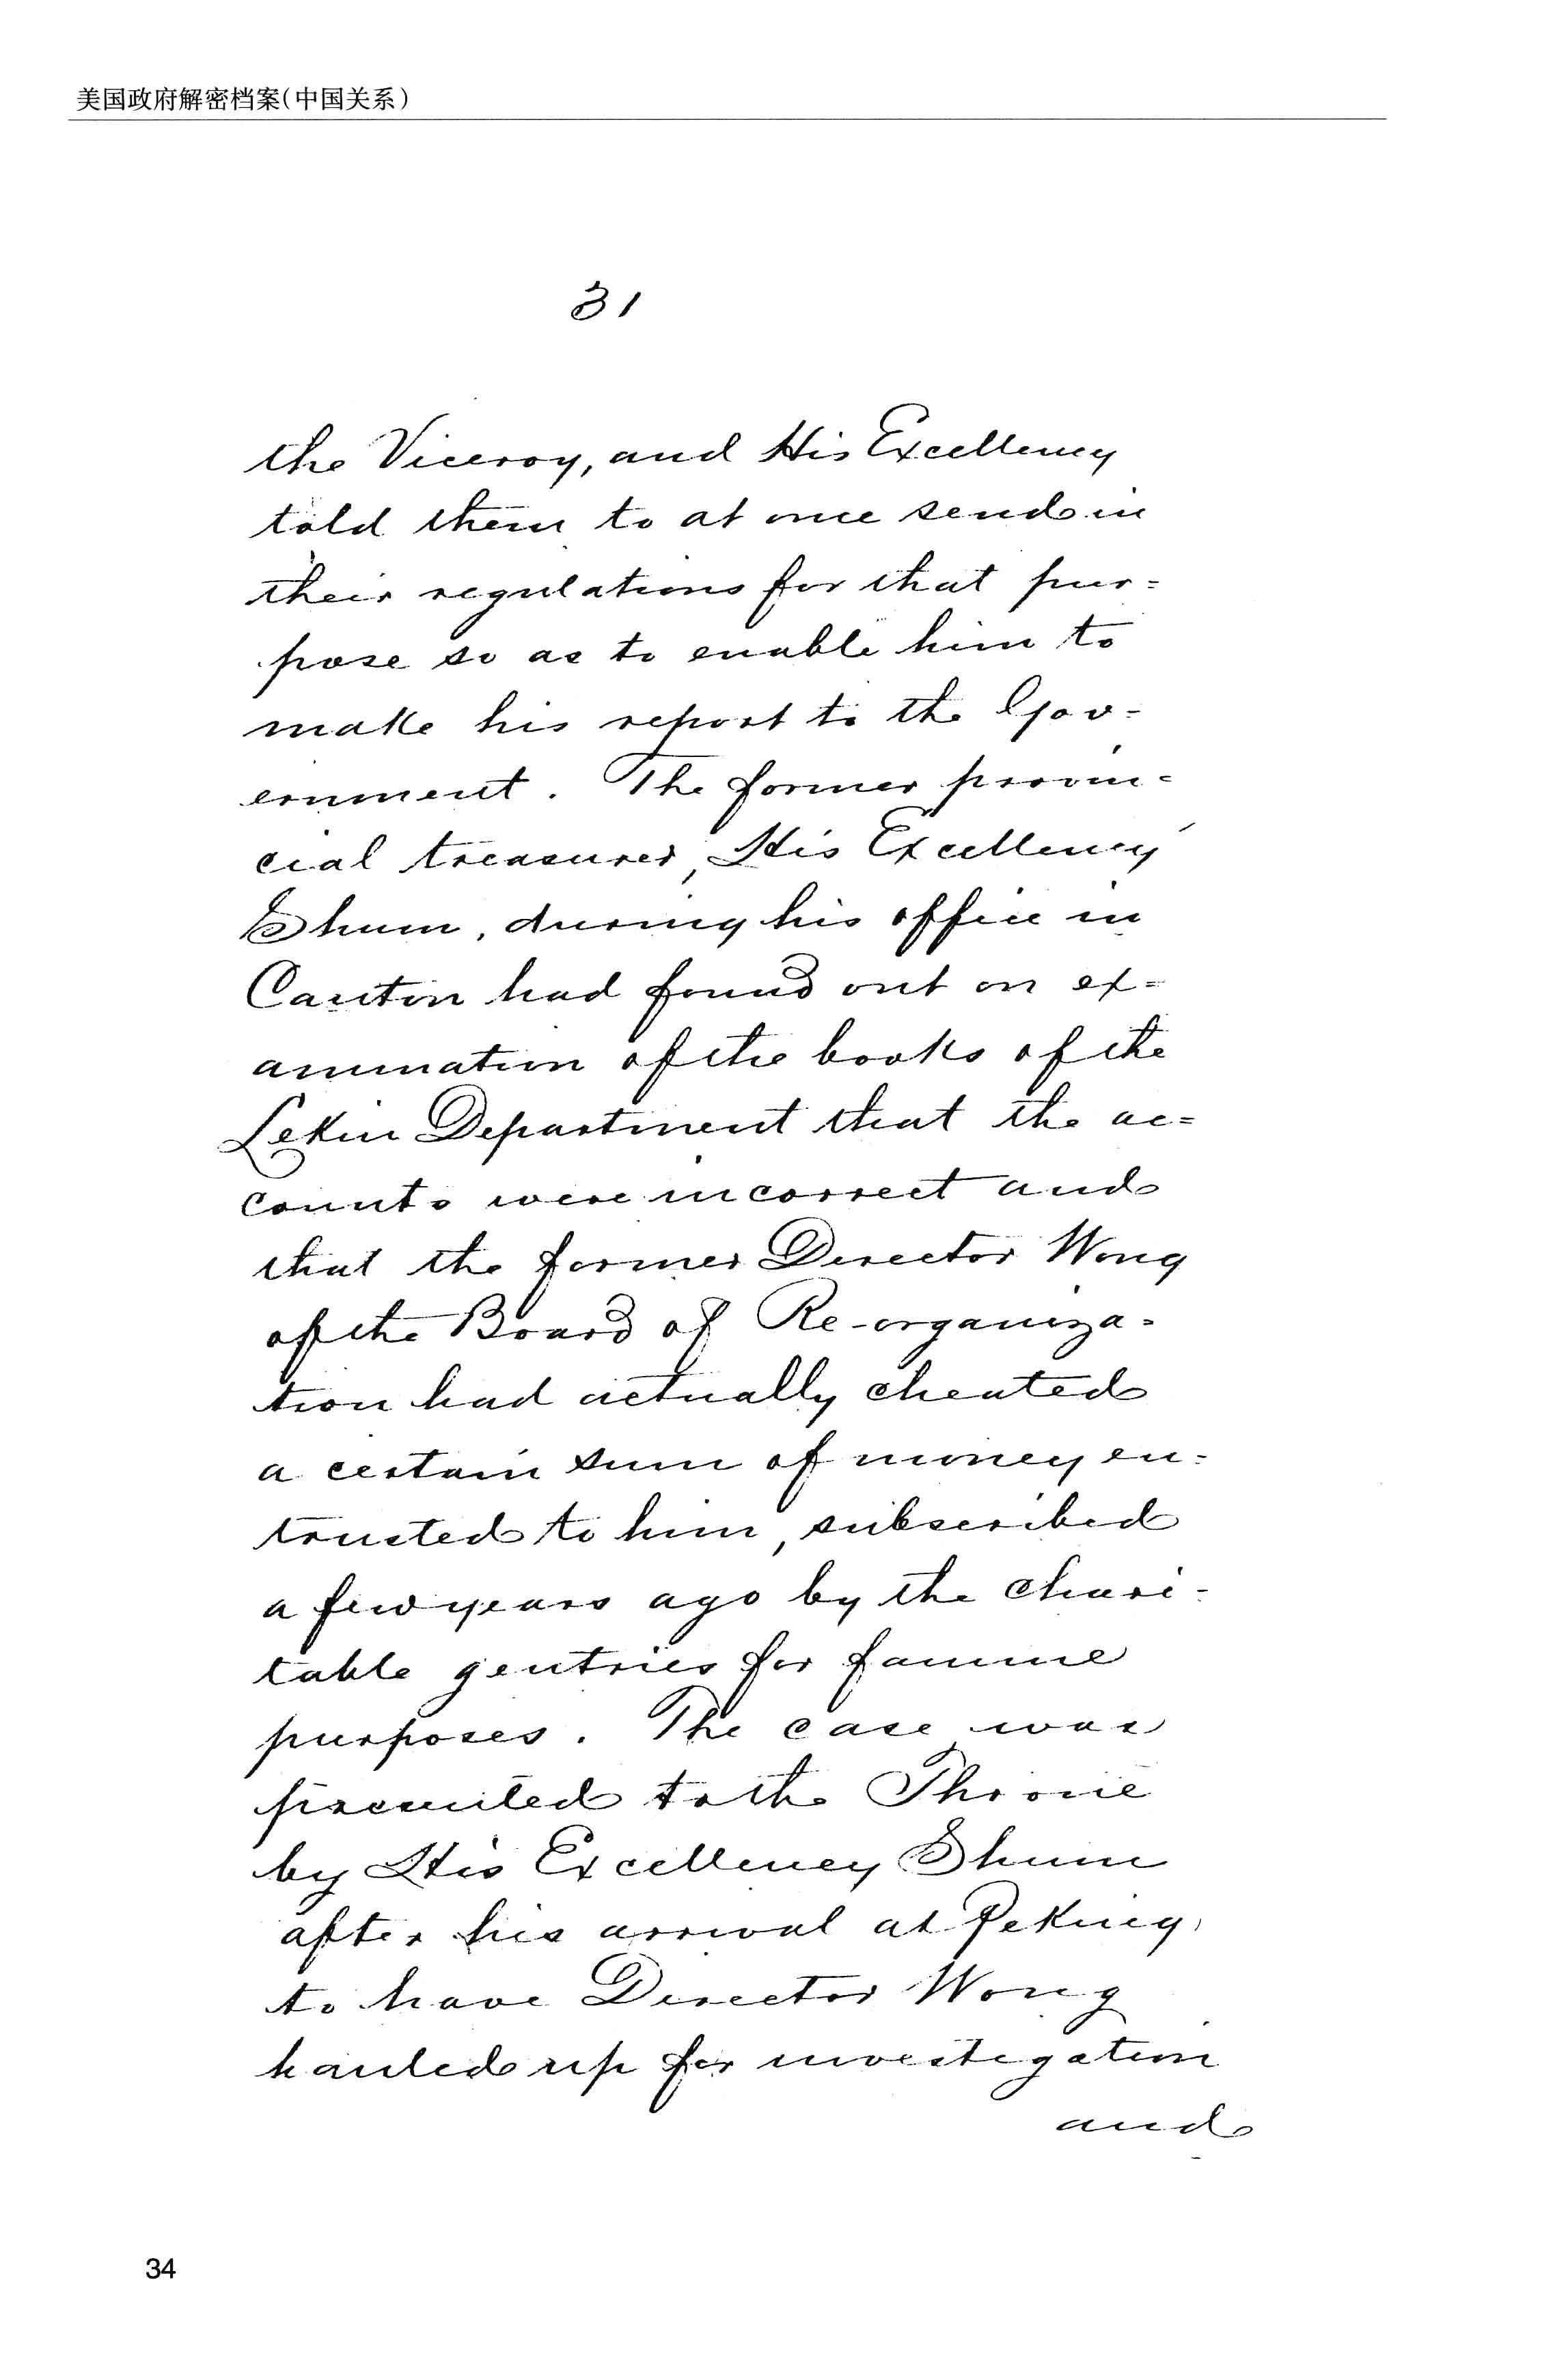 美国政府解密档案(中国关系)
31
the Viceroy, and His Excellency
told them to at once send in
their regulations for that pur=
pose so as to enable him to
make his report to the Gov=
ernment. The former provin=
cial treasurer, His Excellency
Shum, during his office in
Canton had found out on ex=
amination of the books of the
Lekin Department that the ac=
counts were incorrect and
that the former Director Wong
of the Board of Re-organiza=
tion had actually cheated
a certain sum of money en=
trusted to him, subscribed
a few years ago by the chari=
table gentries for famine
purposes. The case was
presented to the Throne
by His Excellency Shum
after his arrival at Peking,
to have Director Wong
hauled up for investigation
and
34